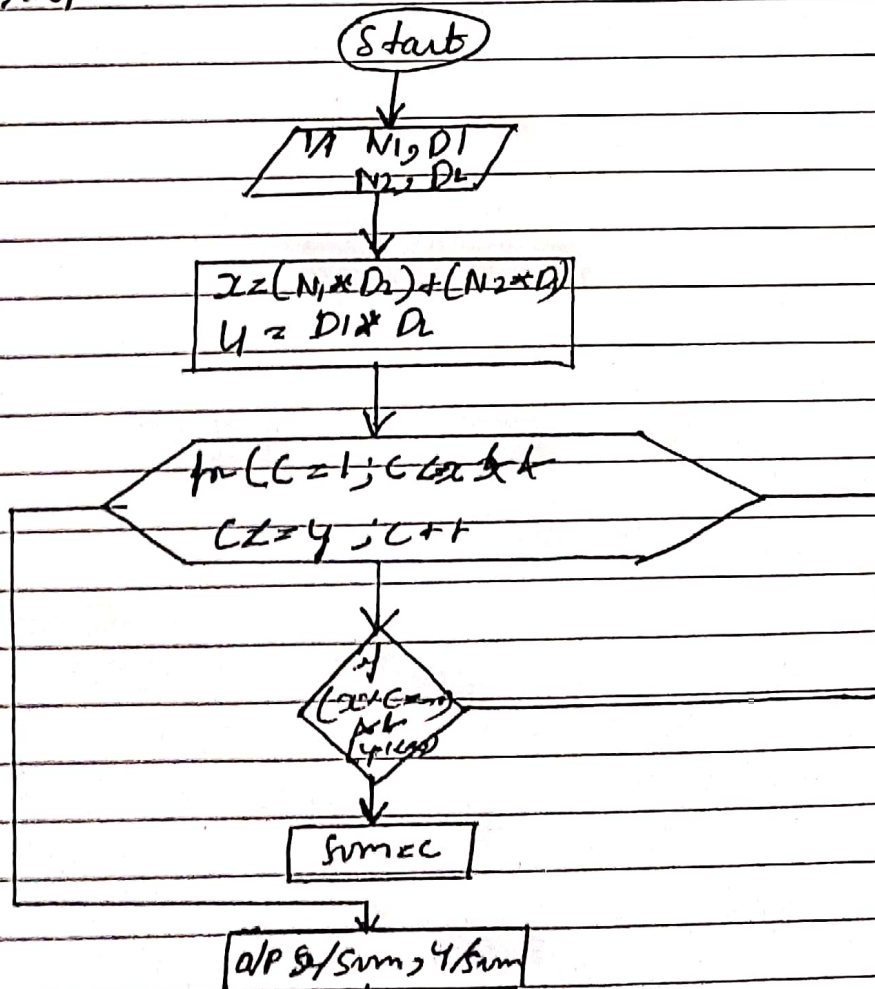 Start
I/P N1, D1
N2, D2
x=(N1*D2)+(N2*D1)
y = D1* D2
for (C=1; C<=x &&
C<=y ; C++
if
Sum=c
O/P x/sum, y/sum